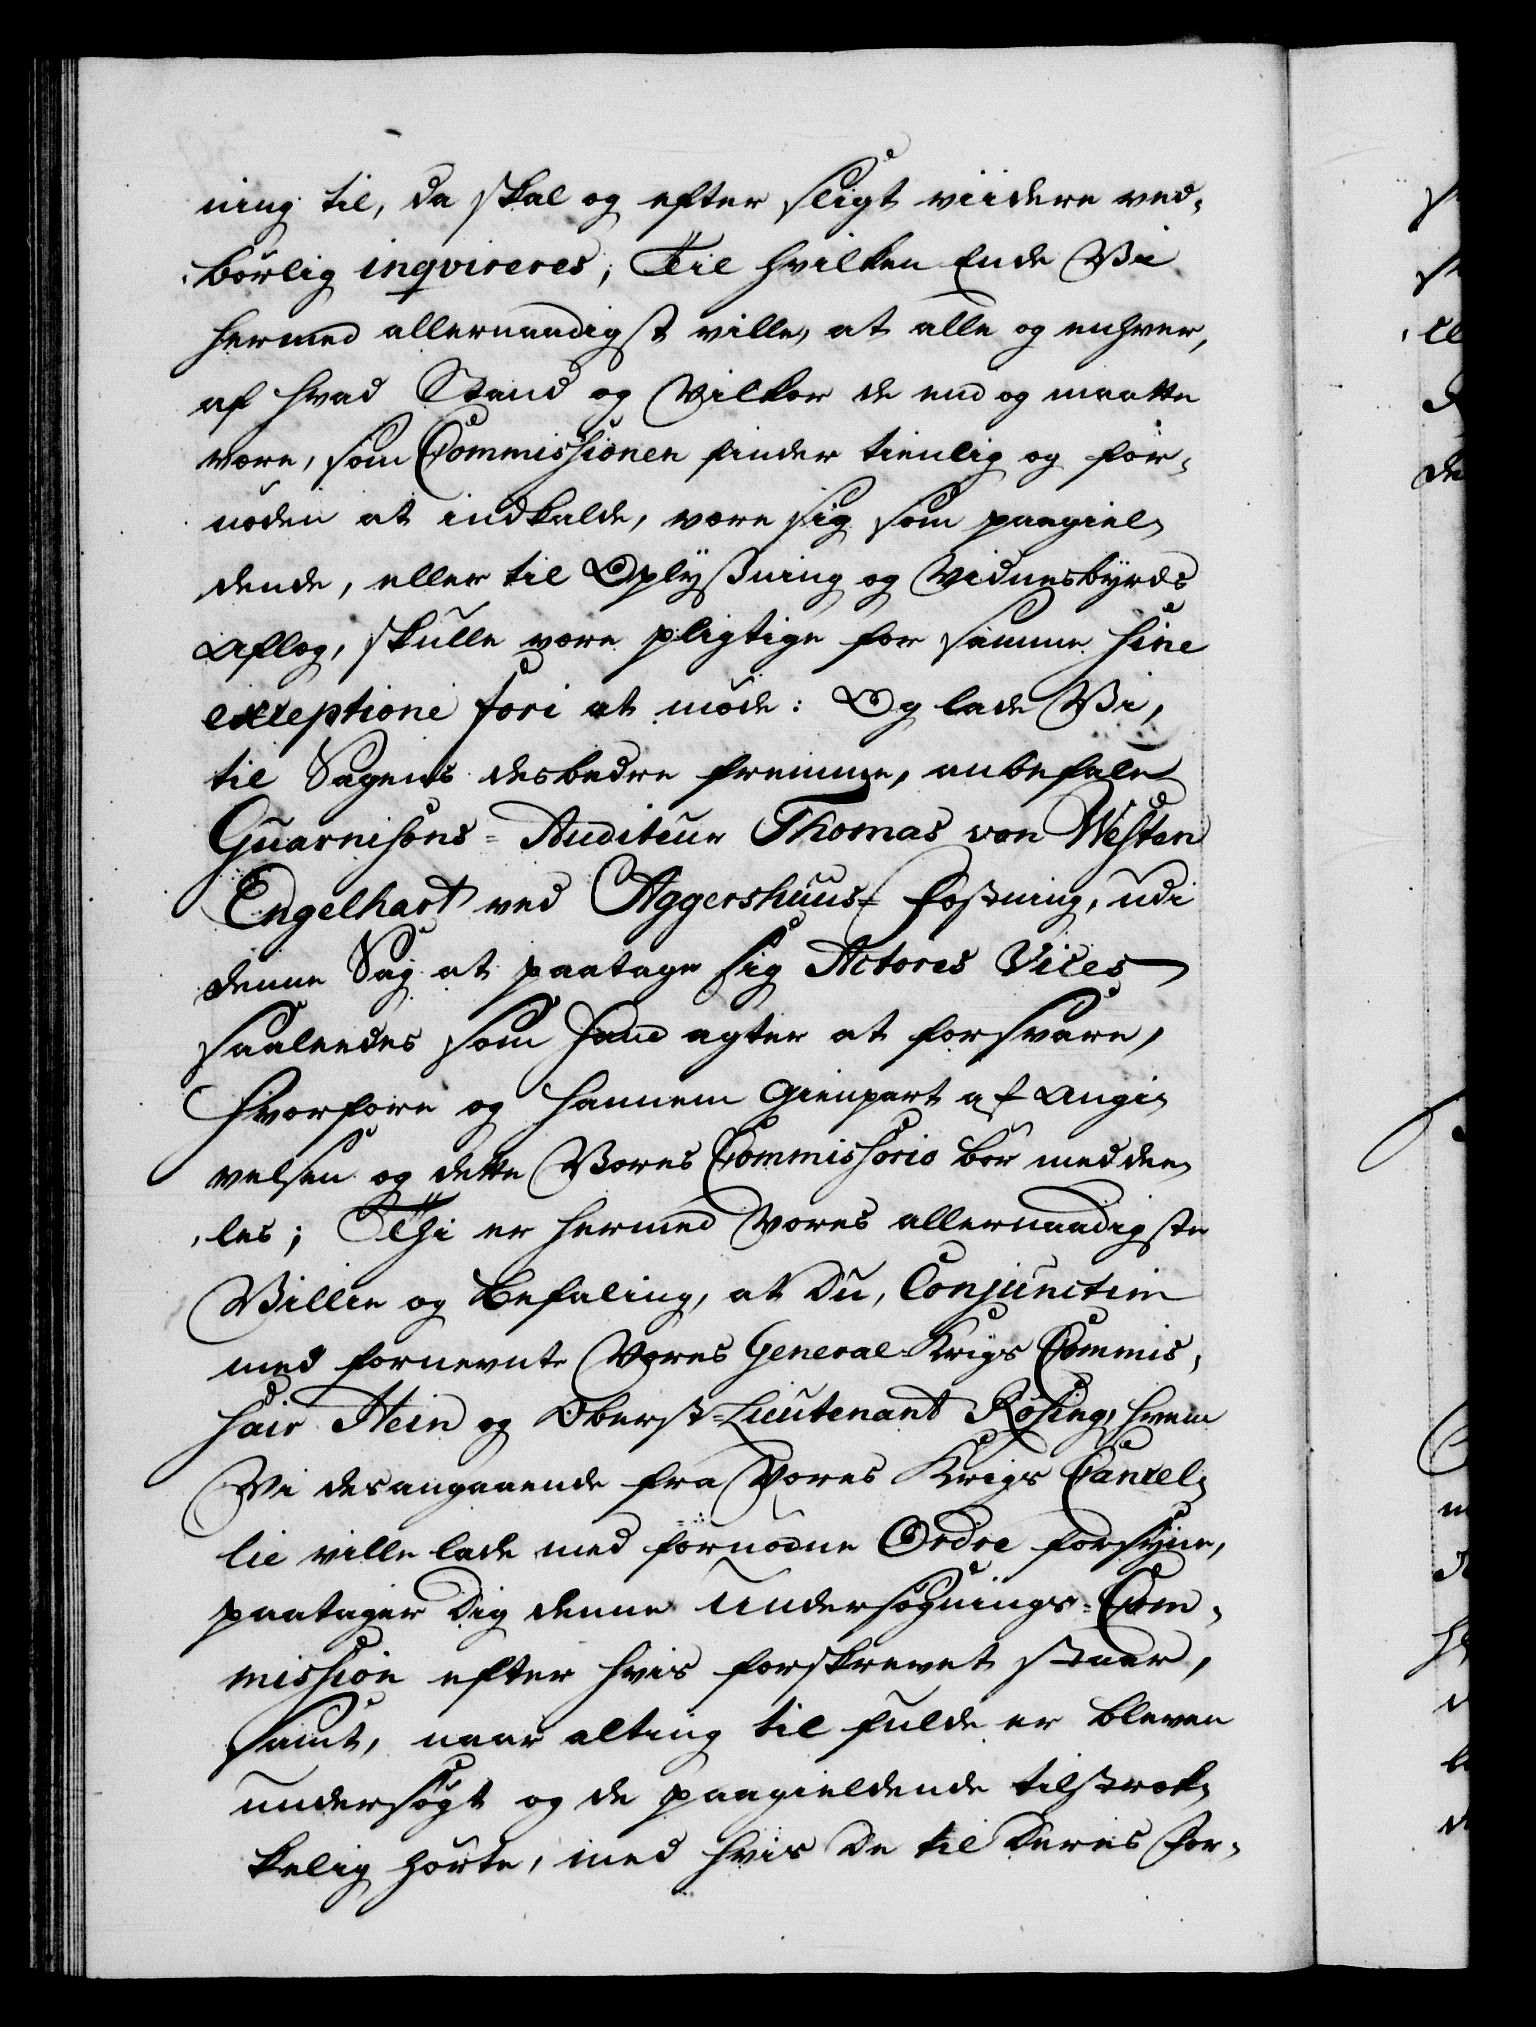 ning til, da skal og efter sligt viidere ved¬
børlig inqvireres; Til hvilken Ende Vi
hermed allernaadigst ville, at alle og enhver,
af hvad Stand og Vilkor de end og maatte
være, som Commissionen finder tienlig og for¬
nøden at indkalde, være sig som paagiel¬
dende, eller til Oplysning og Vidnesbyrds
Aflæg, skulle være pligtige for samme sine
exceptione fori at møde: Og lade Vi,
til Sagens desbedre fremme, anbefale
Guarnisons-Auditeur Thomas von Westen
Engelhart ved Aggershuus-Fæstning, udi
denne Sag at paatage sig Actores Vices
saaleedes som hand agter at forsvare,
hvorfore og hannem Gienpart af Angi¬
velsen og dette Vores Commissorio bør meddee¬
les; Thi er hermed Vores allernaadigste
Villie og Befaling, at Du, Conjunctim
med fornevnte Vores General-Krigs Commis¬
sair Hein og Oberst-Lieutenant Røsing, hvem
Vi desangaaende fra Vores Krigs Cancel¬
lie ville lade med fornødne Ordre forsyne,
paatager Dig denne Undersøgnings-Com¬
mission efter hvis forskrevet staar,
samt, naar alting til fulde er bleven
undersøgt og de paagieldende tilstræk¬
kelig hørte, med hvis De til Deres For¬